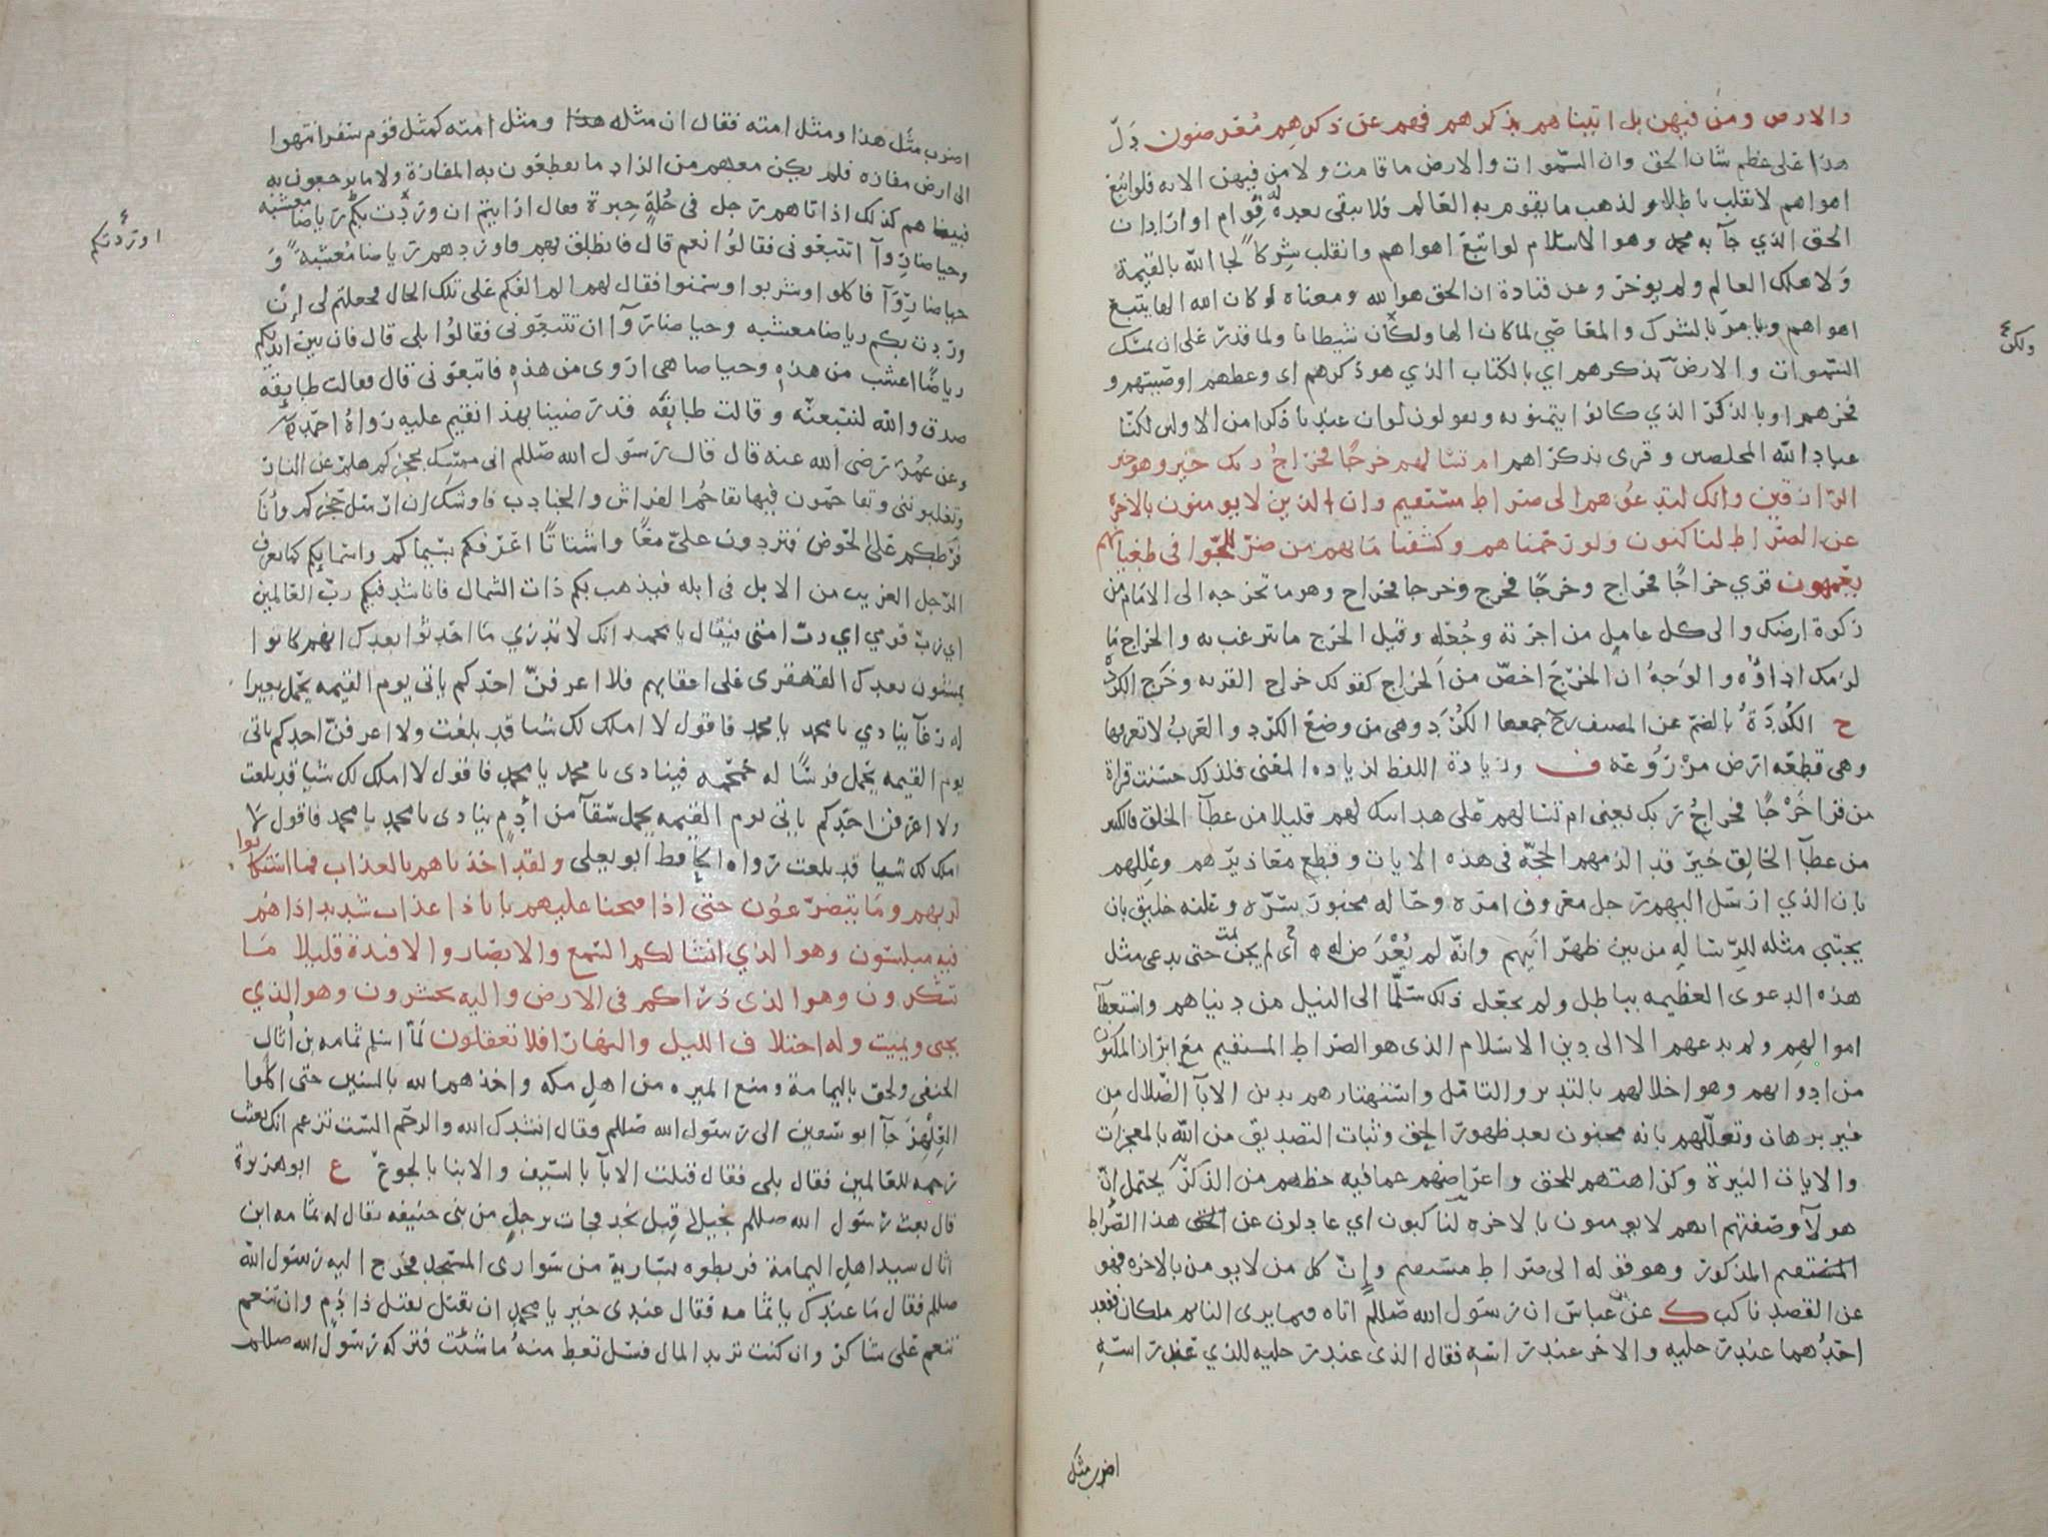 والارض ومن فيهن بل اتيناهم بذكرهم فهم عن ذكرهم معرضون دلّ
هذا على عظم شان الحق وان السموات والارض ما قامت ولا من فيهن الا به فلو اتبع
اهواهم لانقلب باطلا ولذهب ما يقوم به العالم فلا يبقى بعده له قوام او اراد ان
الحق الذي جآ به محمد وهو الاسلام لو اتبع اهواهم وانقلب شركًا لجا الله بالقيمة
ولاهلك العالم ولم يوخر وعن قتادة ان الحق هو الله ومعناه لو كان الله الها يتبع
اهواهم ويامر بالشرك والمعاصي لما كان الها ولكان شيطانا ولما قدر على ان يمسك
ولكن
السموات والارض بذكرهم اي بالكتاب الذي هو ذكرهم اى وعظهم او صيتهم و
فخرهم او بالذكر الذي كانوا يتمنونه ويقولون لو ان عندنا ذكرا من الاولين لكنّا
عباد الله المخلصين وقرى بذكراهم ام تسالهم خرجًا فخراج ربك خير وهو خير
الرازقين وانك لتدعوهم الى صراط مستقيم وان الذين لا يومنون بالاخرة
عن الصراط لناكبون ولو رحمناهم وكشفنا ما بهم من ضر للجّوا في طغيانهم
يعمهون قري خراجًا فخراج وخرجًا فخرج وخرجا فخراج وهو ما تخرجه الى الامام من
زكوة ارضك والى كل عامل من اجرته وجُعله وقيل الخرج ما تبرعت به والخراج ما
لزمك اداؤه والوجهُ ان الخرج اخصّ من الخراج كقولك خراج القريه وخرج الكرد
ح الكُردَةُ بالضم عن المصنف رح جمعها الكُرَد وهى من وضع الكرد والعرب لا تعرفها
وهى قطعه ارض مزروعة ف وزيادة اللفظ لزياده المعنى فلذلك حسنت قراة
من قرا خَرْجًا فخراجُ ربك يعنى ام تسالهم على هدايتك لهم قليلا من عطآ الخلق فالكثير
من عطآ الخالق خير قد الزمهم الحجة في هذه الايات وقطع معاذيرهم وعللهم
بان الذي ارسل اليهم رجل معروف امره وحاله مخبور سره وعلنه خليق بان
يجتبي مثله للرسالة من بين ظهرانيهم وانّه لم يُعْرَض له اى لم يجن حتى يدعى مثل
هذه الدعوى العظيمه بباطل ولم يجعل ذلك سلّمًا الى النيل من دنياهم واستعطآ
اموالهم ولم يدعهم الا الى دين الاسلام الذى هو الصراط المستقيم مع ابراز المكنون
من ادوائهم وهو اخلالهم بالتدبر والتامّل واستهتارهم بدين الابآ الضلال مِن
غير برهان وتعللهم بانه مجنون بعد ظهور الحق وثبات التصديق من الله بالمعجزات
والايات النيرة وكراهتهم للحق واعراضهم عما فيه حظهم من الذكر يحتمل انّ
هولآ وصفتهم انهم لا يومنون بالاخره لناكبون اي عادلون عن هذا الصراط
المستقيم المذكور وهو قوله الى صراط مستقيم وإنّ كل من لا يومن بالاخره فهو
عن القصد ناكب ك عن ابن عباس ان رسول الله صللم اتاه فيما يرى النايم ملكان فقعد
احدُهما عند رجليه والاخر عند راسه فقال الذى عند رجليه للذي عند راسهِ
اضرب مثل
اضرب مثل هذا ومثل امته فقال ان مثله ومثل امته كمثل قوم سفر انتهوا
الى ارض مفازه فلم يكن معهم من الزاد ما يقطعون به المفازة ولا ما يرجعون به
فبينما هم كذلك اذ اتاهم رجل في حُلةٍ حِبرة فقال ارايتم ان وردت بكم رياضا معشبه
اوردتكم
وحياضا روآ اتتبعوني فقالوُا نعم قال فانطلق بهم فاوردهم رياضا مُعشبه و
حياضا رِوآ فاكلوا وشربوا وسمنوا فقال لهم الم الفكم على تلك الحال فجعلتم لي إن
وردت بكم رياضا معشبه وحياضا روآ ان تتبعوني فقالوُا بلى قال فان بين ايديكم
رياضًا اعشب من هذهِ وحياضا هي اروى من هذهِ فاتبعوني قال فقالت طايفة
صدق والله لنتبعنّه وقالت طايفه قد رضينا بهذا نقيم عليه رواهُ احمد
وعن عُمر رضى الله عنه قال قال رسول الله صللم انى ممسك بحجزكم هلم عن النار
وتغلبوننى وتقاحمون فيها تقاحُم الفراش والجنادب فاوشك ان ارسل حجزكم وأنا
فرطكم على الحوض فتردون علىّ معًا واشتاتًا اعرفكم بسيماكم واسمايكم كما يعرف
الرجل الغريب من الابل فى ابله فيذهب بكم ذات الشمال فاناشد فيكم ربّ العالمين
اي ربّ قومي اي رب امتى فيقال يا محمد انك لا تدري ما احدثوا بعدك انهم كانوا
يمشون بعدك القهقرى على اعقابهم فلا اعرفنّ احدكم ياتى يوم القيمه يحمل بعيرا
له رغآ ينادي يا محمد يا محمد فاقول لا املك لك شيا قد بلغت ولا اعرفنّ احدكم ياتى
يوم القيمه يحمل فرسًا له حمحمه فينادى يا محمد يا محمد فاقول لا املك لك شيا قد بلغت
ولا اعرفن احدكم ياتى يوم القيمه يحمل سقآ من أدمٍ ينادى يا محمد يا محمد فاقول لا
املك لك شيا قد بلغت رواه الحافظ ابو يعلى ولقد اخذناهم بالعذاب فما استكانوا
لربهم وما يتضرعوُن حتى اذا فتحنا عليهم بابا ذا عذاب شديد اذا هم
فيه مبلسون وهو الذي انشا لكم السمع والابصار والافئدة قليلا ما
تشكرون وهو الذى ذراكم في الارض واليه تحشرون وهو الذي
يحيى ويميت وله اختلاف الليل والنهار افلا تعقلون لمّا اسلم ثمامه بن أثال
الحنفى ولحق باليمامة ومنع الميره من اهل مكه واخذهم الله بالسنين حتى اكلوا
العِلْهِزَ جآ ابو سفين الى رسول الله صللم فقال انشدك الله والرحم الست تزعم انك بعثت
رحمه للعالمين فقال بلى فقال قتلت الابآ بالسيف والابنا بالجوع ع ابو هريرة
قال بعث رسول الله صللم بخيل قِبل نجد فجات برجلٍ من بنى حنيفه يقال له ثمامه ابن
اثال سيد اهل اليمامة فربطوه بسارية من سوارى المسجد فخرج اليه رسول الله
صللم فقال ما عندك يا ثمامه فقال عندى خير يا محمد ان تقتل تقتل ذا دم وان تنعم
تنعم على شاكر وان كنت تريد المال فسل تعط منهُ ما شئت فتركه رسول الله صللم